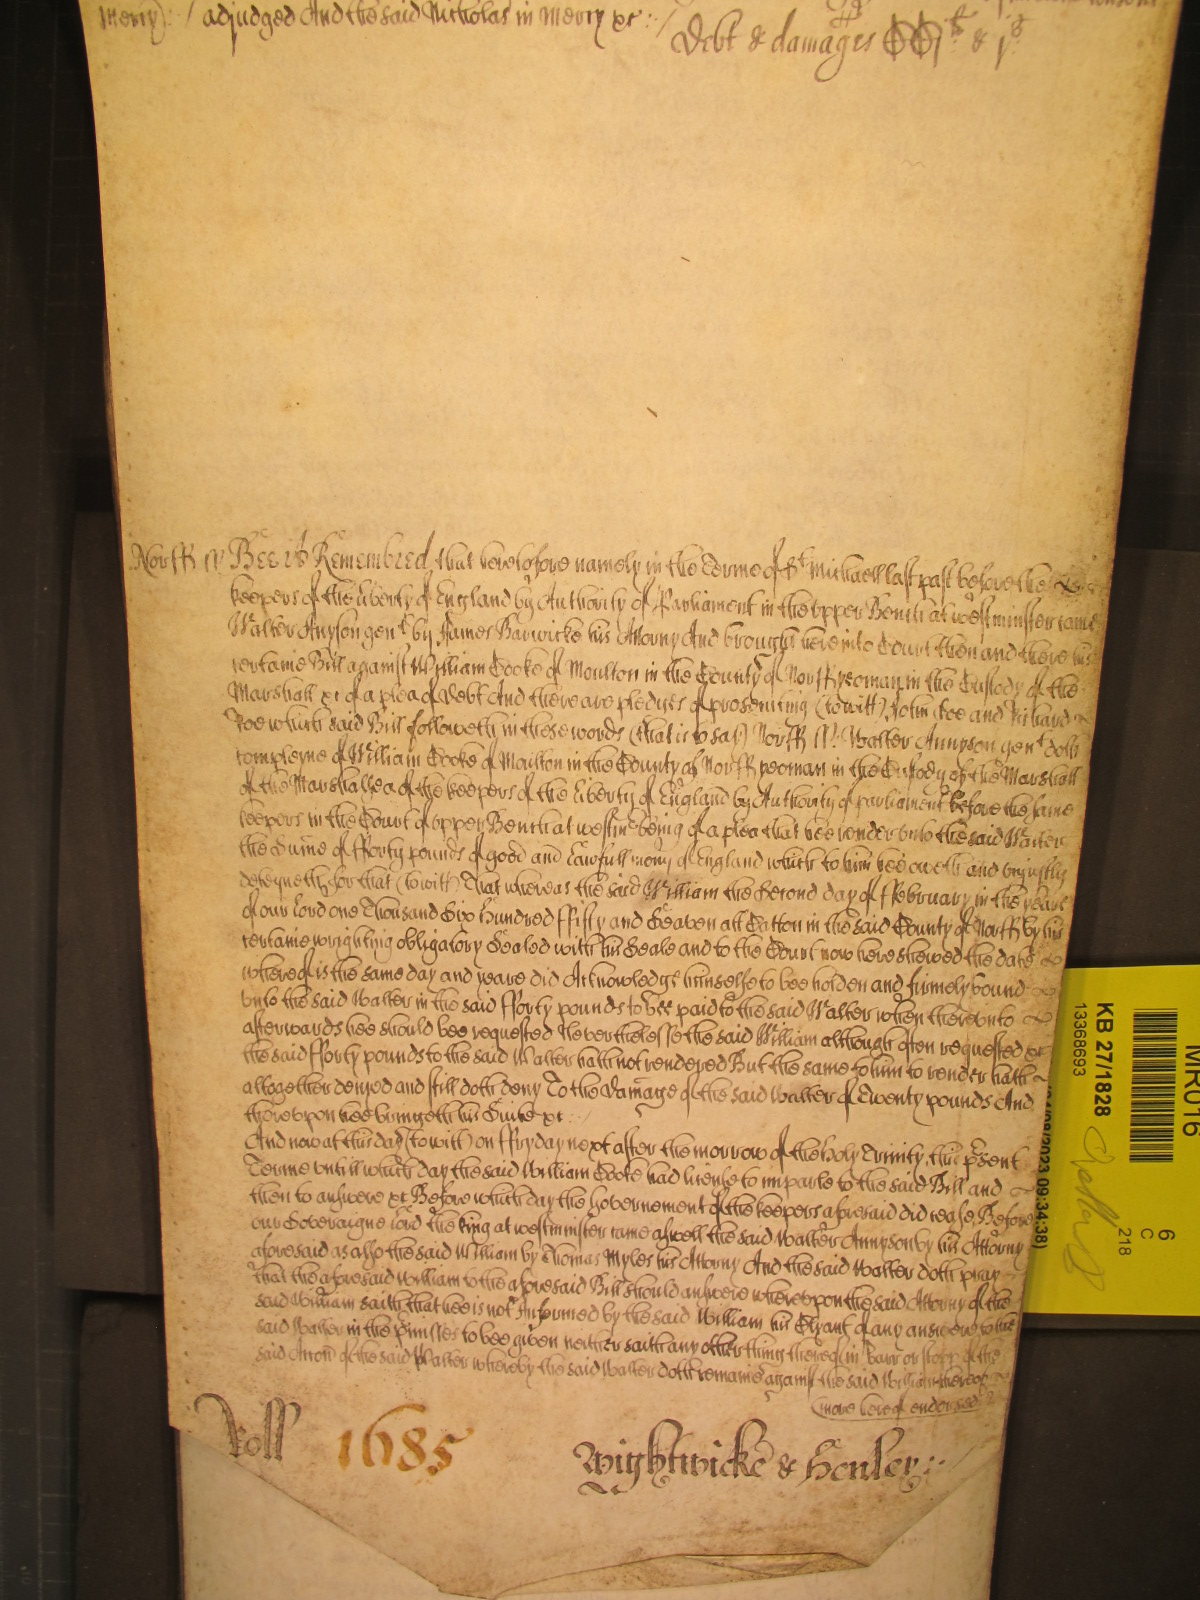 Merry) / adjudged And the said Nicholas in Merry xc :/
Debt & damages & js
Norff ss Bee it Remembred that heretofore namely in the Terme of St Michaell last past before the
keepers of the liberty of England by Authority of Parliament in the upper Bench at westminster came
Walter Anyson gent by James Barwicke his Attorny And brought here into Court then and there his
certaine Bill against William Cooke of Moulton in the County of Norff yeoman in the Custody of the
Marshall xc of a plea of debt And there are pledges of prosecuting (to witt) John Doe and Richard
Roe which said Bill followeth in these words (that is to say) Norff ss Walter Annyson gent doth
compleyne of William Cooke of Moulton in the County of Norff yeoman in the Custody of the Marshall
of the Marshallsea of the keepers of the liberty of England by Authority of parliament before the same
keepers in the Court of upper Bench at westmr being of a plea that hee render unto the said Walter
the Sume of fforty pounds of good and lawfull mony of England which to him hee oweth and uniustly
deteyneth for that (to witt) That whereas the said William the Second day of ffebruary in the yeare
of our lord one Thousand Six hundred ffifty and Seaven att Catton in the said County of Norff by his
certaine wrighting obligatory Sealed with his Seale and to the Court now here shewed the date
whereof is the same day and yeare did Acknowledge himselfe to bee holden and firmely bound
unto the said Walter in the said fforty pounds to bee paid to the said Walter when thereunto
afterwards hee should bee requested Neverthelesse the said William although often requested xc
the said fforty pounds to the said Walter hath not rendered But the same to him to render hath
altogether denyed and still doth deny To the damage of the said Walter of Twenty pounds And
thereupon hee bringeth his Suite xc :
And now at this day (to witt) on ffryday next after the morrow of the holy Trinity this psent
Terme untill which day the said William Cooke had licence to imparle to the said Bill and
then to answere xc Before which day the Governement of the keepers aforesaid did cease Before
our Soveraigne lord the king at westminster came aswell the said Walter Annyson by his Attorny
aforesaid as also the said William by Thomas Myles his Attorny And the said Walter doth pray
that the aforesaid William to the aforesaid Bill should answere whereupon the said Attorny of the
said William saith that hee is not Informed by the said William his Clyant of any answere to the
said Walter in the pmisses to bee given neither saith any other thing thereof in barr or stopp of the
said Accon of the said Walter whereby the said Walter doth remaine against the said William thereof
(more hereof endorsed
Roll 1685 Wightwicke & Henley :
KB 27/1828
13368693
09:34:38)
218
6
C
MR016